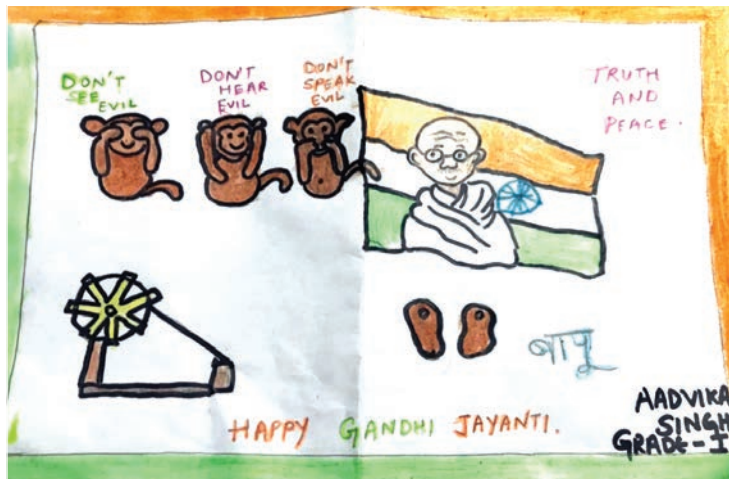 DON'T
SEE
EVIL
DON'T
HEAR
EVIL
DON'T
SPEAK
EVIL
TRUTH
AND
PEACE.
बापू
HAPPY GANDHI JAYANTI.
AADVIKA
SINGH
GRADE-I